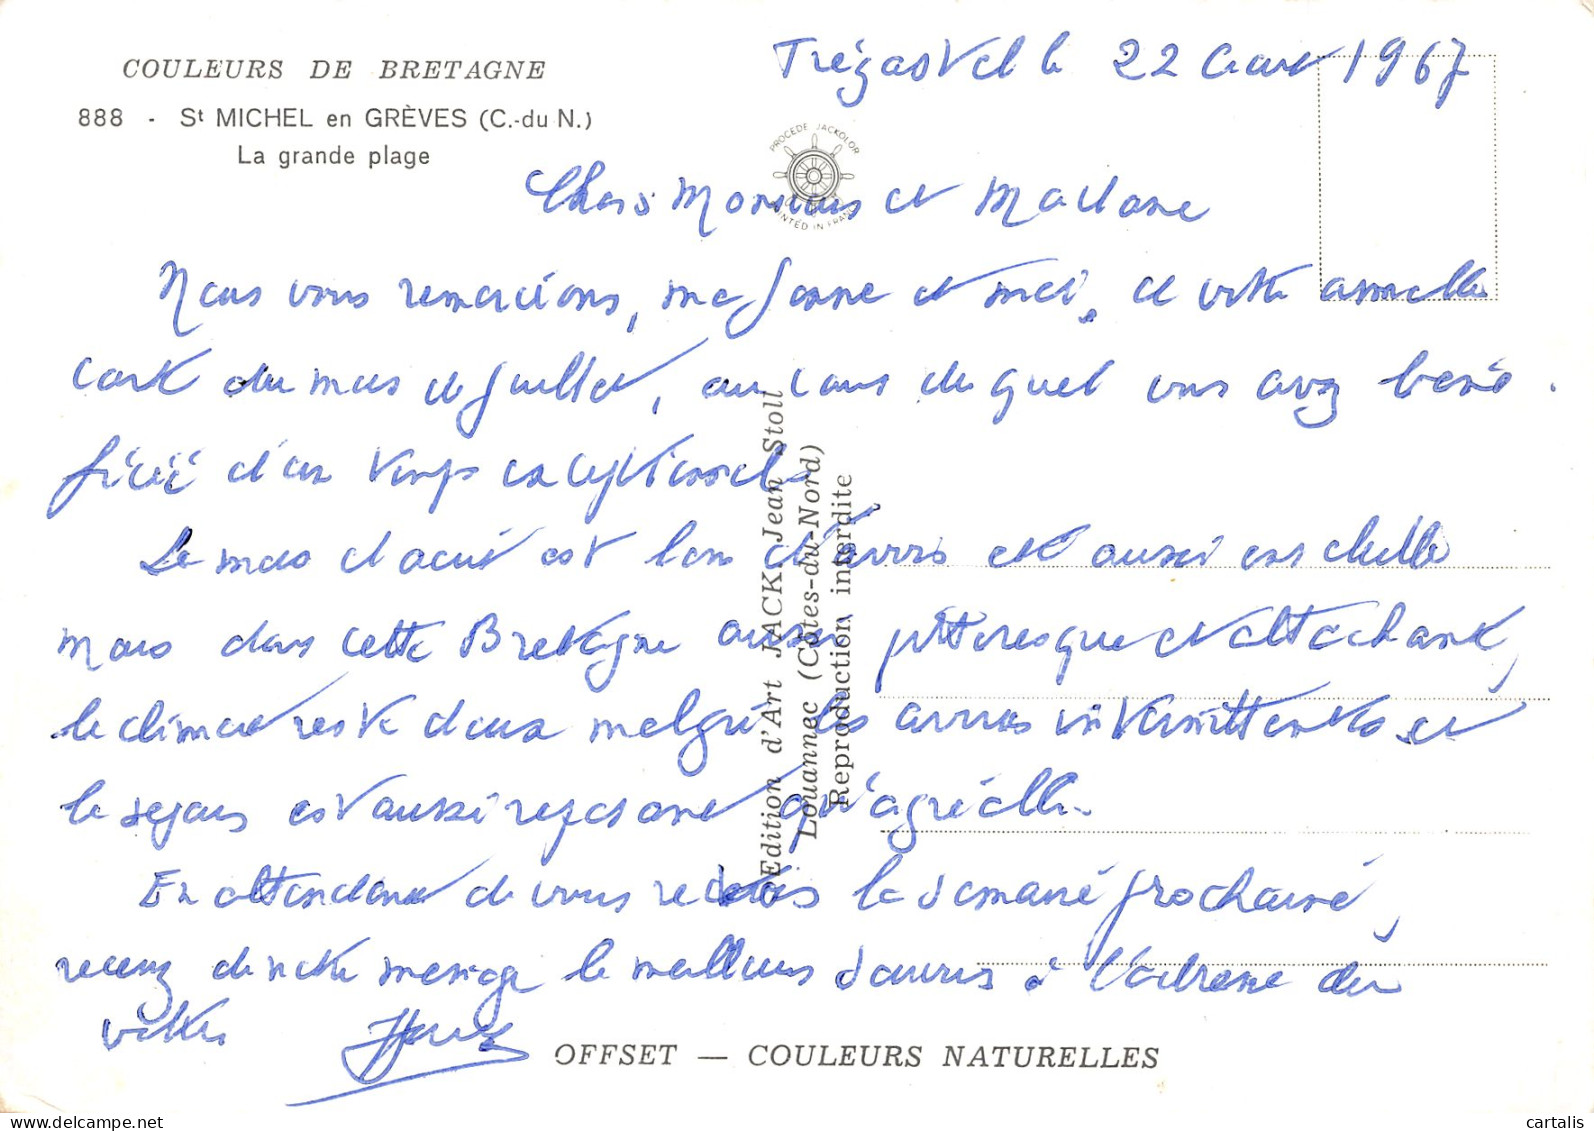 COULEURS DE BRETAGNE
888 - St MICHEL en GRÈVES (C.-du N.)
La grande plage
Trégastel le 22 Aout 1967
PROCEDE JACKOLOR
PRINTED IN FRANCE
Chers Monsieur et Madame
Nous vous remercions, ma femme et moi, de votre amicale
carte du mois de Juillet, au cours duquel vous avez béné-
ficié d'un temps exceptionnel.
Le mois d'août est lui aussi
mais dans cette Bretagne aussi pittoresque et attachante,
le climat reste doux malgré les averses intermittentes et
le séjour est aussi reposant qu'agréable.
En attendant de vous revoir la semaine prochaine,
recevez de notre ménage le meilleur souvenir à l'adresse des
vôtres
Edition d'Art JACK. Jean Stoll
Louannec (Côtes-du-Nord)
Reproduction interdite
OFFSET — COULEURS NATURELLES
cartalis
www.delcampe.net